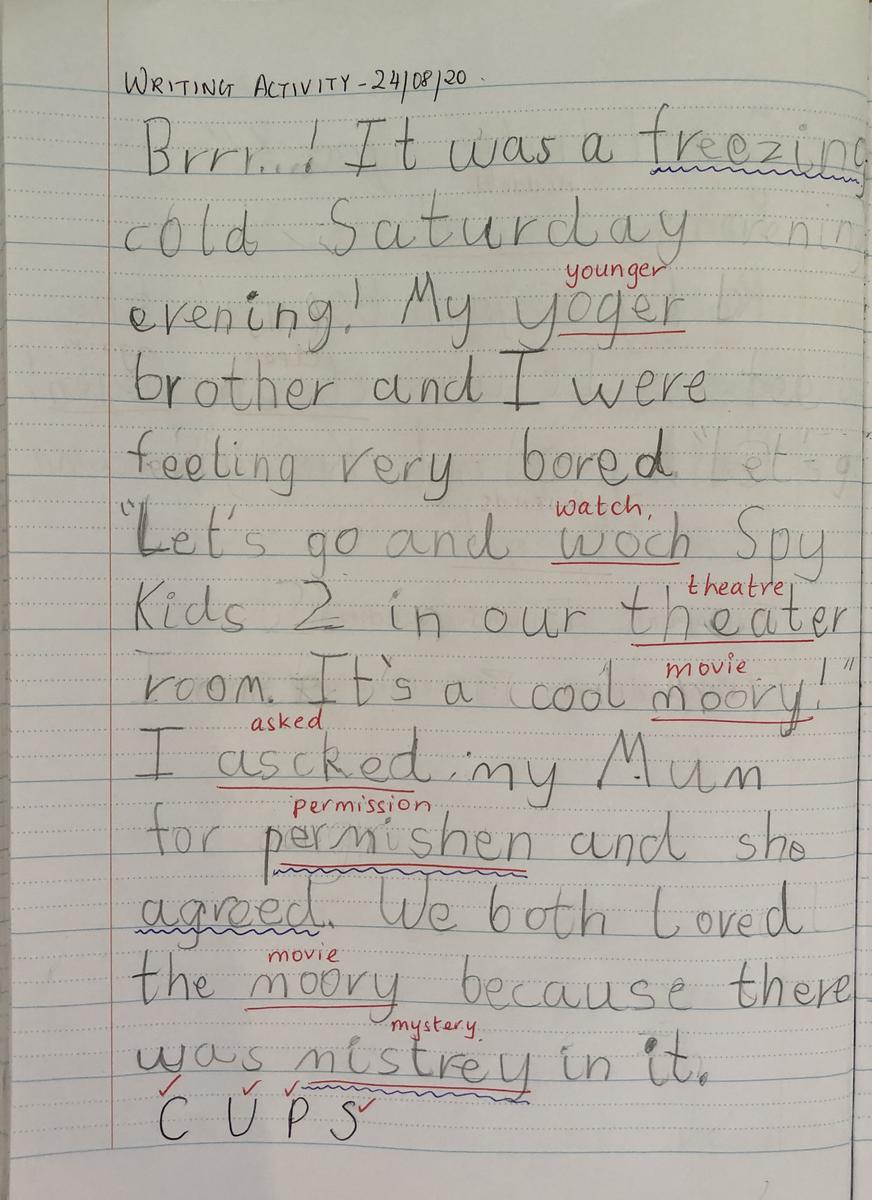 WRITING ACTIVITY - 24/08/20.
Brrr...! It was a freezing
cold Saturday
younger
evening! My yoger
brother and I were
feeling very bored
watch,
"Let's go and woch Spy
theatre
Kids 2 in our theater
movie
room. It's a cool moovy!"
asked
I ascked my Mum
permission
for permishen and she
agreed. We both Loved
movie
the moovy because there
mystery
was mistrey in it.
C U P S